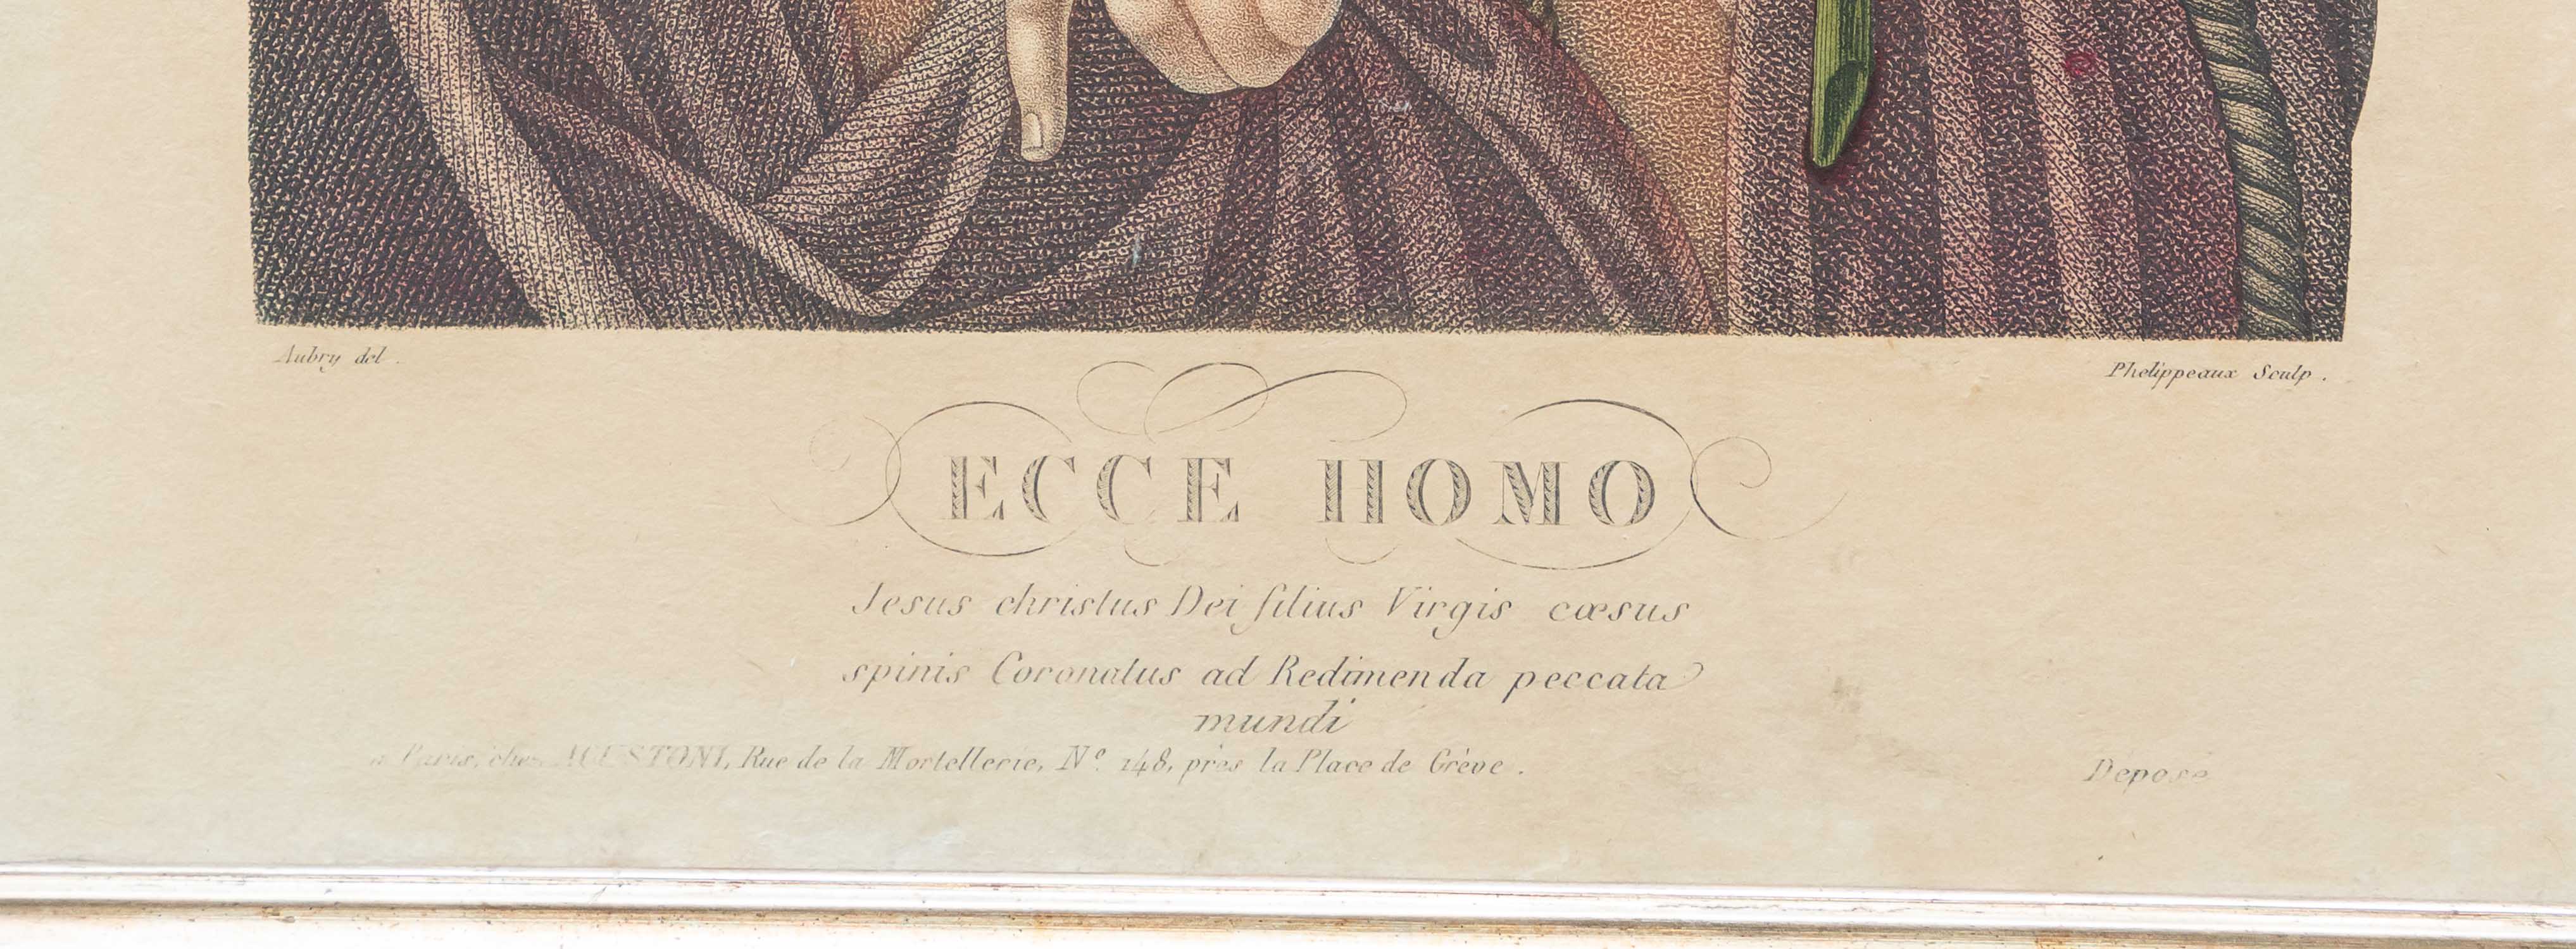 Aubry del.
Phelippeaux Sculp.
ECCE HOMO
Jesus christus Dei filius Virgis cæsus
spinis Coronatus ad Redimenda peccata
mundi
a Paris, chez AGUSTONI, Rue de la Mortellerie, Nº. 148, près la Place de Grève.
Déposé